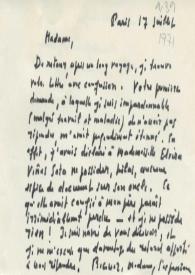 Paris 17 juillet
1971
Madame,
De retour après un long voyage, je trouve
votre lettre avec confusion. Votre première
demande, à laquelle je suis impardonnable
(malgré travail et maladies) de n'avoir pas
répondu m'avait cependant étonné. En
effet, j'avais déclaré à Mademoiselle Eloina
Viñas Sola ne posséder, hélas, aucune
espèce de documents sur son oncle. Ce
qu'elle avait confié à mon père paraît
irrémédiablement perdu — et je ne possède
rien ! Je suis navré de vous décevoir, et
je ne m'excuse que davantage du retard apporté
à vous répondre. Madame, l'expression